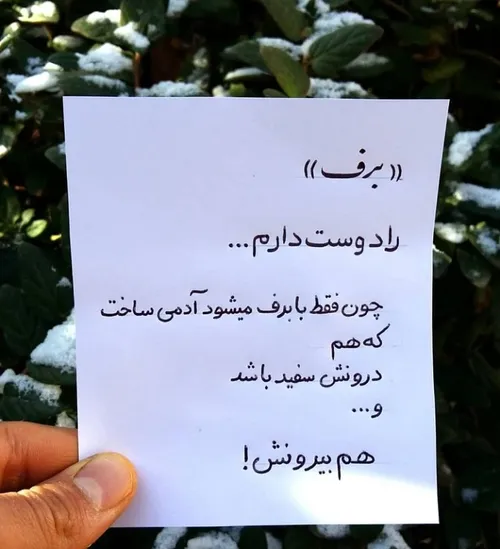 (( برف ))
را دوست دارم...
چون فقط با برف میشود آدمی ساخت
که هم
درونش سفید باشد
و...
هم بیرونش!